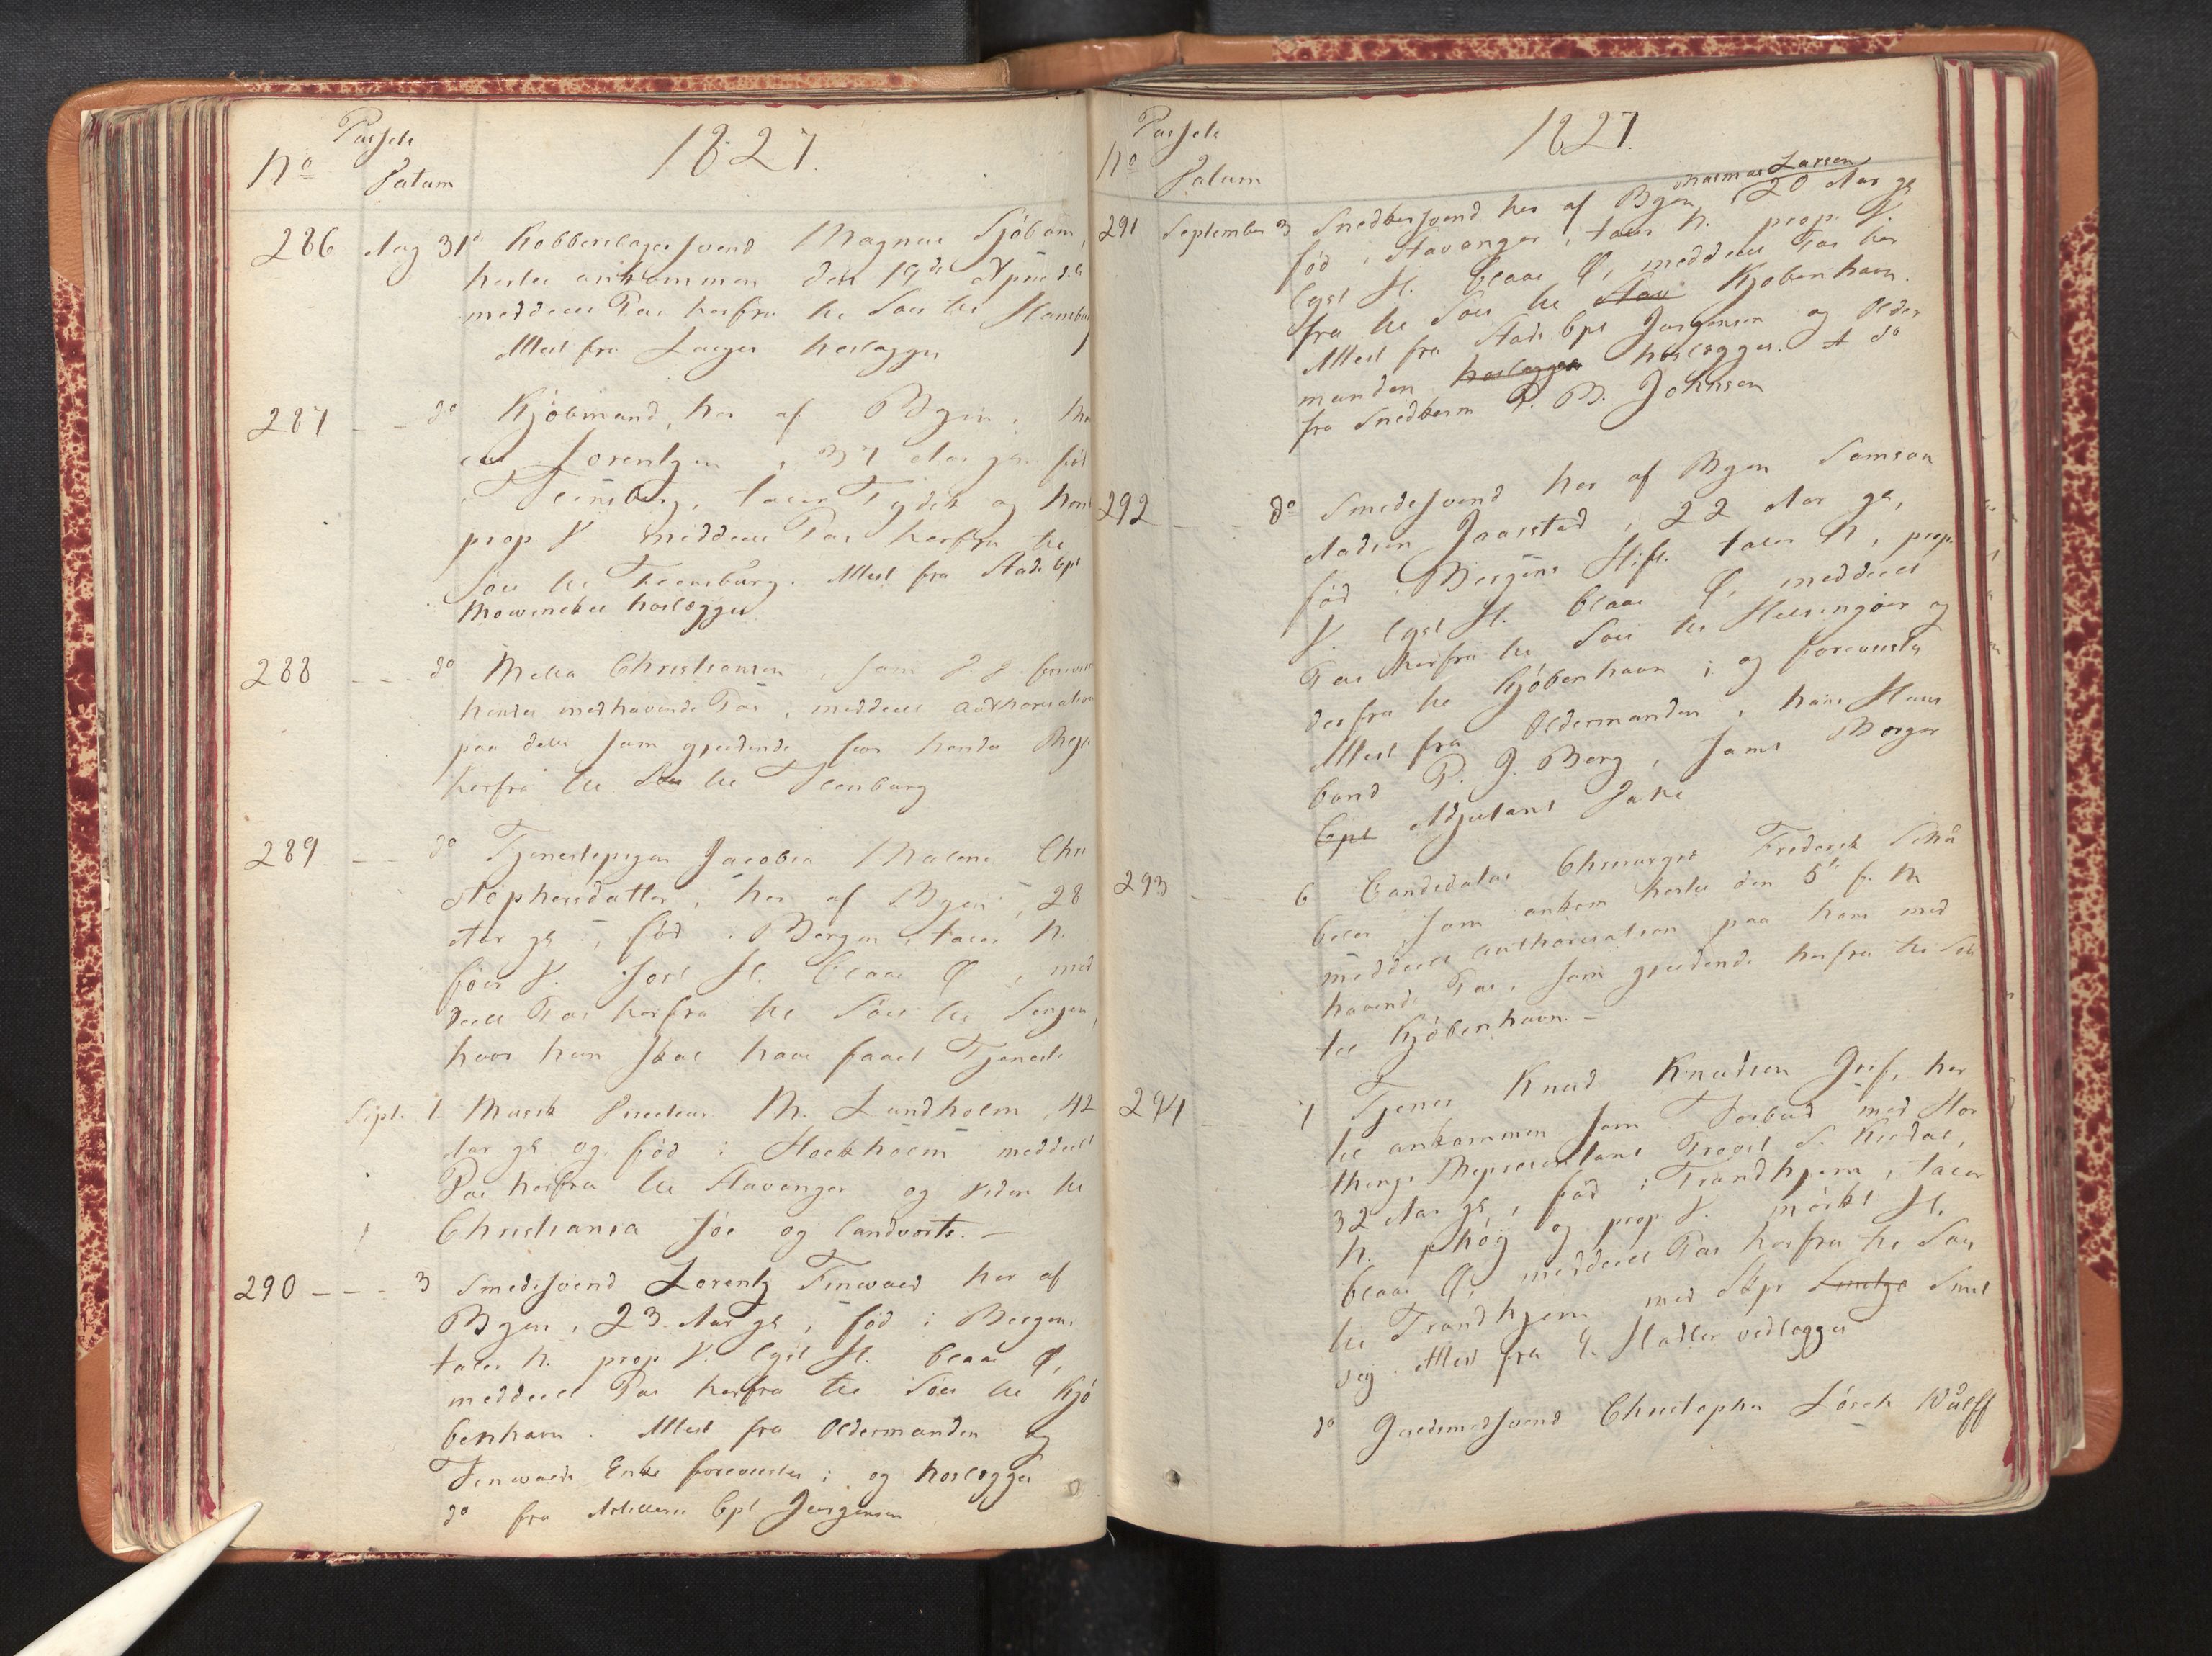 Passets
No Datum 1827.
286 Aug 31t Kobberslagersvend Magnus Sjöbom,
hertil ankommen den 19de April d. A.
meddeelt Pas herfra til Söes til Hamburg
Attest fra Lauget herlagger
287 - - do Kjöbmand, her af Byen,
Lorentzen, 37 Aar gam föd
i Flensburg, taler Tydsk og Norsk
prop. V. meddeelt Pas herfra til
Söes til Flensburg. Attest fra Stads Cpt
Mowinckel herlægger
288 - - - do Metta Christiansen, som d. d. foreviist
hendes medhavende Pas, meddeelt Authorisation
paa dette som gjeldende for hendes Reise
herfra til Söes til Flensburg
289 - - do Tjenestepigen Jacobia Malene Chri
stophersdatter, her af Byen, 28
Aar gl, föd i Bergen, taler N.
föer V. sort H. blaae Ø, med
deelt Pas herfra til Söes til Sengen,
hvor hun skal have faaet Tjeneste
Sept. 1. Musik Directeur M. Lundholm, 42
Aar gl og föd i Stockholm meddeelt
Pas herfra til Stavanger og viden til
Christiania söe og landværts. -
290 - - - 3 Smedesvend Lorentz Finwaed her af
Byen, 23 Aar gl, föd i Bergen.
taler N. prop. V. lyst H. blaae Ø,
meddeelt Pas herfra til Söes til Kjö
benhavn. Attest fra Oldermanden og
Finwaeds Enke forevistes; og herlægges
do fra Artillerie Cpt Jörgensen
Passets
No Datum 1827.
Rasmus Larsen
291 September 3 Snedkersvend her af Byen, 20 Aar gl
föd i Stavanger, taler N. prop. V.
lyst H. blaae Ø, meddeelt Pas her
fra til Söes til Stav Kjöbenhavn.
Attest fra Stads Cpt Jörgensen og Older
manden herlægges herlægges. A do
fra Snedkerm P. B. Johnsen
292 - - do Smedesvend her af Byen Samson
Madsen Jaarstad, 22 Aar gl,
föd i Bergens Stift. taler N, prop.
V. lyst H. blaae Ø, meddeelt
Pas herfra til Söes til Helsingöer og
derfra til Kjöbenhavn; og forevistes
Attest fra Oldermanden, hans Huus
bond P. J. Berg, samt Borger
Cpt Adjutant Jahn
293 - - - 6 Candidatus Chirurgiæ Frederik Schü
beler som ankom hertil den 5te f. M
meddeelt Authorisation paa hans med
havende Pas, som gjeldende herfra til Söes
til Kjöbenhavn. -
294 - 7 Tjener Knud Knudsen Grif, her
til ankommen som Forbud med Stor
things Representant Provst S. Kildal,
32 Aar gl, föd i Trondhjem, taler
N. höy og prop. V. mörkt H.
blaae Ø, meddeelt Pas herfra til Söes
til Trondhjem med Skpr Smitge Smit
sig. Attest fra C. Stadler vedlægges
do Guldsmedsvend Christopher Lösch Wülff